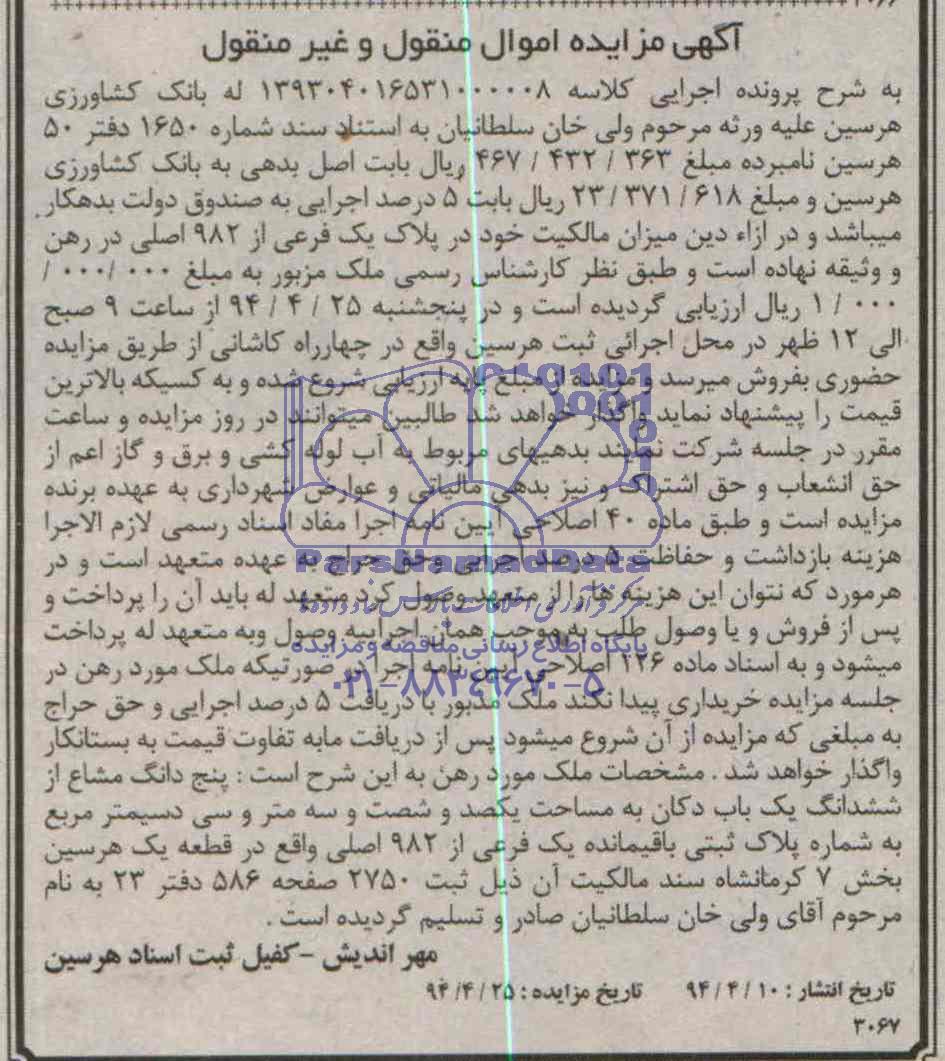 ۳۰۶۶
آگهی مزایده اموال منقول و غیر منقول
به شرح پرونده اجرایی کلاسه ۱۳۹۳۰۴۰۱۶۵۳۱۰۰۰۰۰۸ له بانک کشاورزی
هرسین علیه ورثه مرحوم ولی خان سلطانیان به استناد سند شماره ۱۶۵۰ دفتر ۵۰
هرسین نامبرده مبلغ ۳۶۳ / ۴۳۲ / ۴۶۷ ریال بابت اصل بدهی به بانک کشاورزی
هرسین و مبلغ ۶۱۸ / ۳۷۱ / ۲۳ ریال بابت ۵ درصد اجرایی به صندوق دولت بدهکار
میباشد و در ازاء دین میزان مالکیت خود در پلاک یک فرعی از ۹۸۲ اصلی در رهن
و وثیقه نهاده است و طبق نظر کارشناس رسمی ملک مزبور به مبلغ ۰۰۰ /۰۰۰ /
۰۰۰ / ۱ ریال ارزیابی گردیده است و در پنجشنبه ۲۵ / ۴ / ۹۴ از ساعت ۹ صبح
الی ۱۲ ظهر در محل اجرائی ثبت هرسین واقع در چهارراه کاشانی از طریق مزایده
حضوری بفروش میرسد و مزایده از مبلغ پایه ارزیابی شروع شده و به کسیکه بالاترین
قیمت را پیشنهاد نماید واگذار خواهد شد طالبین میتوانند در روز مزایده و ساعت
مقرر در جلسه شرکت نمایند بدهیهای مربوط به آب لوله کشی و برق و گاز اعم از
حق انشعاب و حق اشتراک و نیز بدهی مالیاتی و عوارض شهرداری به عهده برنده
مزایده است و طبق ماده ۴۰ اصلاحی آیین نامه اجرا مفاد اسناد رسمی لازم الاجرا
هزینه بازداشت و حفاظت ۵ درصد اجرایی وحق حراج به عهده متعهد است و در
هرمورد که نتوان این هزینه ها را از متعهد وصول کرد متعهد له باید آن را پرداخت و
پس از فروش و یا وصول طلب به موجب همان اجراییه وصول وبه متعهد له پرداخت
میشود و به اسناد ماده ۱۲۶ اصلاحی آیین نامه اجرا در صورتیکه ملک مورد رهن در
جلسه مزایده خریداری پیدا نکند ملک مذبور با دریافت ۵ درصد اجرایی و حق حراج
به مبلغی که مزایده از آن شروع میشود پس از دریافت مابه تفاوت قیمت به بستانکار
واگذار خواهد شد . مشخصات ملک مورد رهن به این شرح است : پنج دانگ مشاع از
ششدانگ یک باب دکان به مساحت یکصد و شصت و سه متر و سی دسیمتر مربع
به شماره پلاک ثبتی باقیمانده یک فرعی از ۹۸۲ اصلی واقع در قطعه یک هرسین
بخش ۷ کرمانشاه سند مالکیت آن ذیل ثبت ۲۷۵۰ صفحه ۵۸۶ دفتر ۲۳ به نام
مرحوم آقای ولی خان سلطانیان صادر و تسلیم گردیده است .
مهر اندیش - کفیل ثبت اسناد هرسین
تاریخ انتشار : ۱۰ / ۴ / ۹۴ تاریخ مزایده : ۲۵ / ۴/ ۹۴
۳۰۶۷
ParsNamadData
پایگاه اطلاع رسانی مناقصه و مزایده
۰۲۱-۸۸۳۴۹۶۷۰-۵